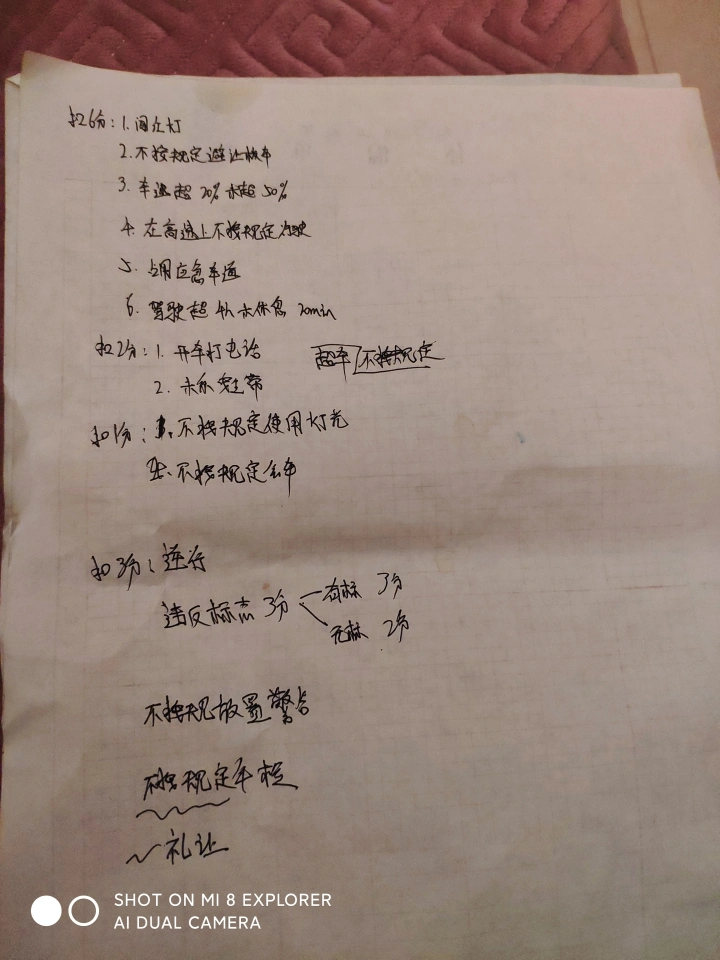 扣6分：1. 闯红灯
2. 不按规定避让校车
3. 车速超20%未超50%
4. 在高速上不按规定驾驶
5. 占用应急车道
6. 驾驶超4h未休息20min
扣2分：1. 开车打电话 超车 不按规定
2. 未系安全带
扣1分：1. 不按规定使用灯光
2. 不按规定会车
扣3分：逆行
违反标志3分 有标 3分
无标 2分
不按规放置警告
不按规定年检
礼让
SHOT ON MI 8 EXPLORER
AI DUAL CAMERA